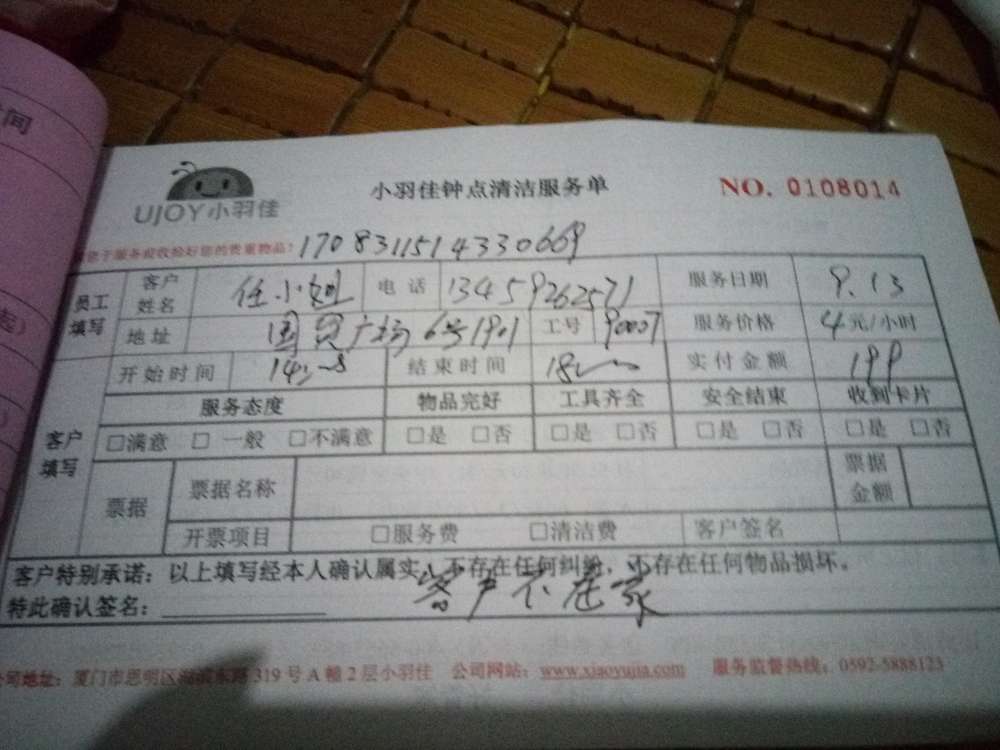 间
UJOY小羽佳
小羽佳钟点清洁服务单
NO. 0108014
于服务前收拾好您的贵重物品!
1708311514330669
员工填写 客户姓名 任小姐 电话 13459262571 服务日期 9.13
地址 国贸广场6号1901 工号 90007 服务价格 4元/小时
客户填写 开始时间 14 结束时间 18 实付金额 199
服务态度 物品完好 工具齐全 安全结束 收到卡片
□满意 □一般 □不满意 □是 □否 □是 □否 □是 □否 □是 □否
票据 票据名称 票据金额
开票项目 □服务费 □清洁费 客户签名
客户特别承诺:以上填写经本人确认属实,不存在任何纠纷,不存在任何物品损坏。
特此确认签名: 客户不在家
公司地址:厦门市思明区湖滨东路319号A幢2层小羽佳 公司网站:www.xiaoyujia.com 服务监督热线:0592-5888123